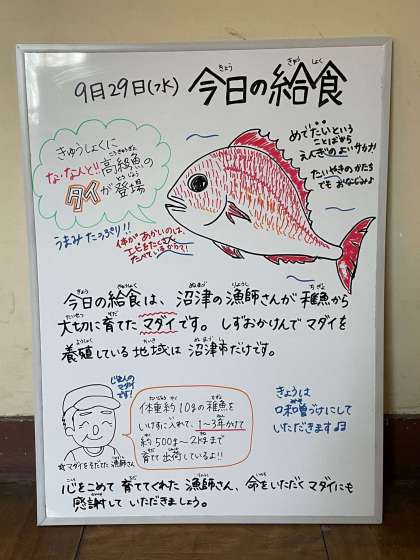 9月29日(水) 今日の給食
きゅうしょくに
な・なんと!!高級魚の
タイが登場
うまみたっぷり!!
体があかいのは、
エビをたくさん
たべているから?!
めでたいという
ことばから
えんぎのよいサカナ!
たいやきのかたち
でもおなじみよ
今日の給食は、沼津の漁師さんが稚魚から
大切に育てたマダイです。しずおかけんでマダイを
養殖している地域は沼津市だけです。
じまんの
マダイ
です!
☆マダイをそだてた漁師さん
体重約10gの稚魚を
いけすに入れて、1〜3年かけて
約500g〜2kgまで
育て出荷しているよ!!
きょうは
味噌づけにして
いただきます♫
心をこめて育ててくれた漁師さん、命をいただくマダイにも
感謝していただきましょう。